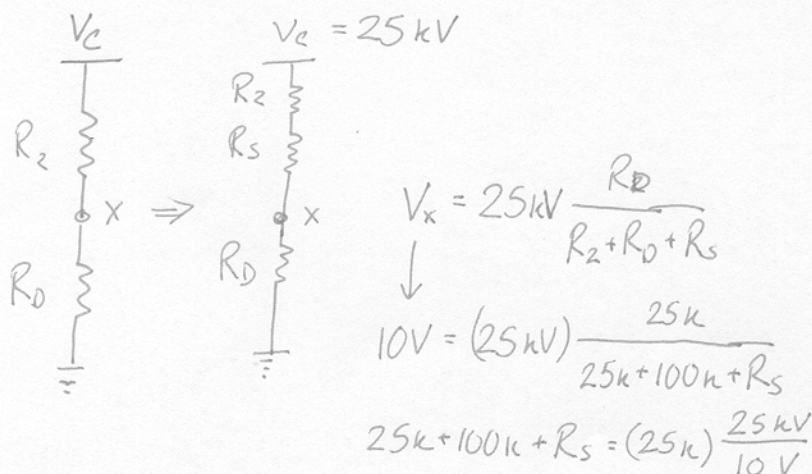 V_C
V_C = 25 kV
R_2
R_2
R_S
X ⇒
X
R_D
R_D
V_x = 25kV R_D / (R_2 + R_D + R_S)
↓
10V = (25kV) 25k / (25k + 100k + R_S)
25k + 100k + R_S = (25k) 25kV / 10 V